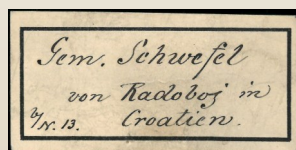 Gem. Schwefel
von Radoboj in
N. 13. Croatien.